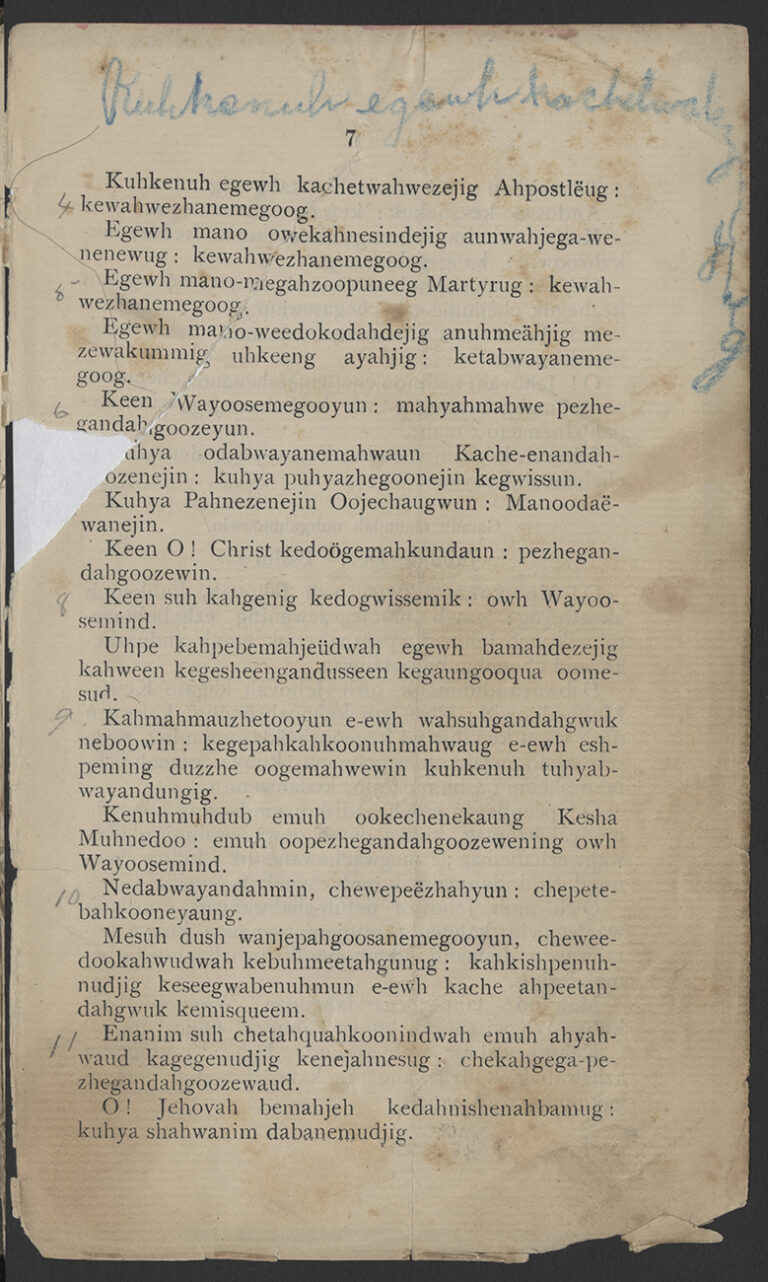 Kuhkenuh egewh kachetwah
7
Kuhkenuh egewh kachetwahwezejig Ahpostlëug :
4 kewahwezhanemegoog.
Egewh mano owekahnesindejig aunwahjega-we-
nenewug : kewahwezhanemegoog.
Egewh mano-megahzoopuneeg Martyrug : kewah-
wezhanemegoog.
Egewh mano-weedokodahdejig anuhmeähjig me-
zewakummig, uhkeeng ayahjig : ketabwayaneme-
goog.
6 Keen Wayoosemegooyun : mahyahmahwe pezhe-
gandahgoozeyun.
odabwayanemahwaun Kache-enandah-
ozenejin : kuhya puhyazhegoonejin kegwissun.
Kuhya Pahnezenejin Oojechaugwun : Manoodaë-
wanejin.
Keen O ! Christ kedoögemahkundaun : pezhegan-
dahgoozewin.
8 Keen suh kahgenig kedogwissemik : owh Wayoo-
semind.
Uhpe kahpebemahjeüdwah egewh bamahdezejig
kahween kegesheengandusseen kegaungooqua oome-
sud.
9 Kahmahmauzhetooyun e-ewh wahsuhgandahgwuk
neboowin : kegepahkahkoonuhmahwaug e-ewh esh-
peming duzzhe oogemahwewin kuhkenuh tuhyab-
wayandungig.
Kenuhmuhdub emuh ookechenekaung Kesha
Muhnedoo : emuh oopezhegandahgoozewening owh
Wayoosemind.
10 Nedabwayandahmin, chewepeëzhahyun : chepete-
bahkooneyaung.
Mesuh dush wanjepahgoosanemegooyun, chewee-
dookahwudwah kebuhmeetahgunug : kahkishpenuh-
nudjig keseegwabenuhmun e-ewh kache ahpeetan-
dahgwuk kemisqueem.
11 Enanim suh chetahquahkoonindwah emuh ahyah-
waud kagegenudjig kenejahnesug : chekahgega-pe-
zhegandahgoozewaud.
O ! Jehovah bemahjeh kedahnishenahbamug :
kuhya shahwanim dabanemudjig.